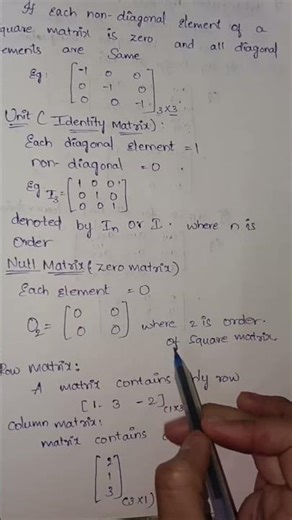 If each non-diagonal element of a
square matrix is zero and all diagonal
elements are Same
Eg: [-1 0 0
0 -1 0
0 0 -1] 3×3.
Unit (Identity Matrix):
Each diagonal element = 1
non-diagonal = 0
Eg I3 = [1 0 0
0 1 0
0 0 1]
denoted by In or I. where n is
Order
Null Matrix (zero matrix)
Each element = 0
O2 = [0 0
0 0] where 2 is order.
of square matrix
Row matrix:
A matrix contains only row
[1 3 -2](1×3
column matrix:
matrix contains
[2
1
3](3×1)